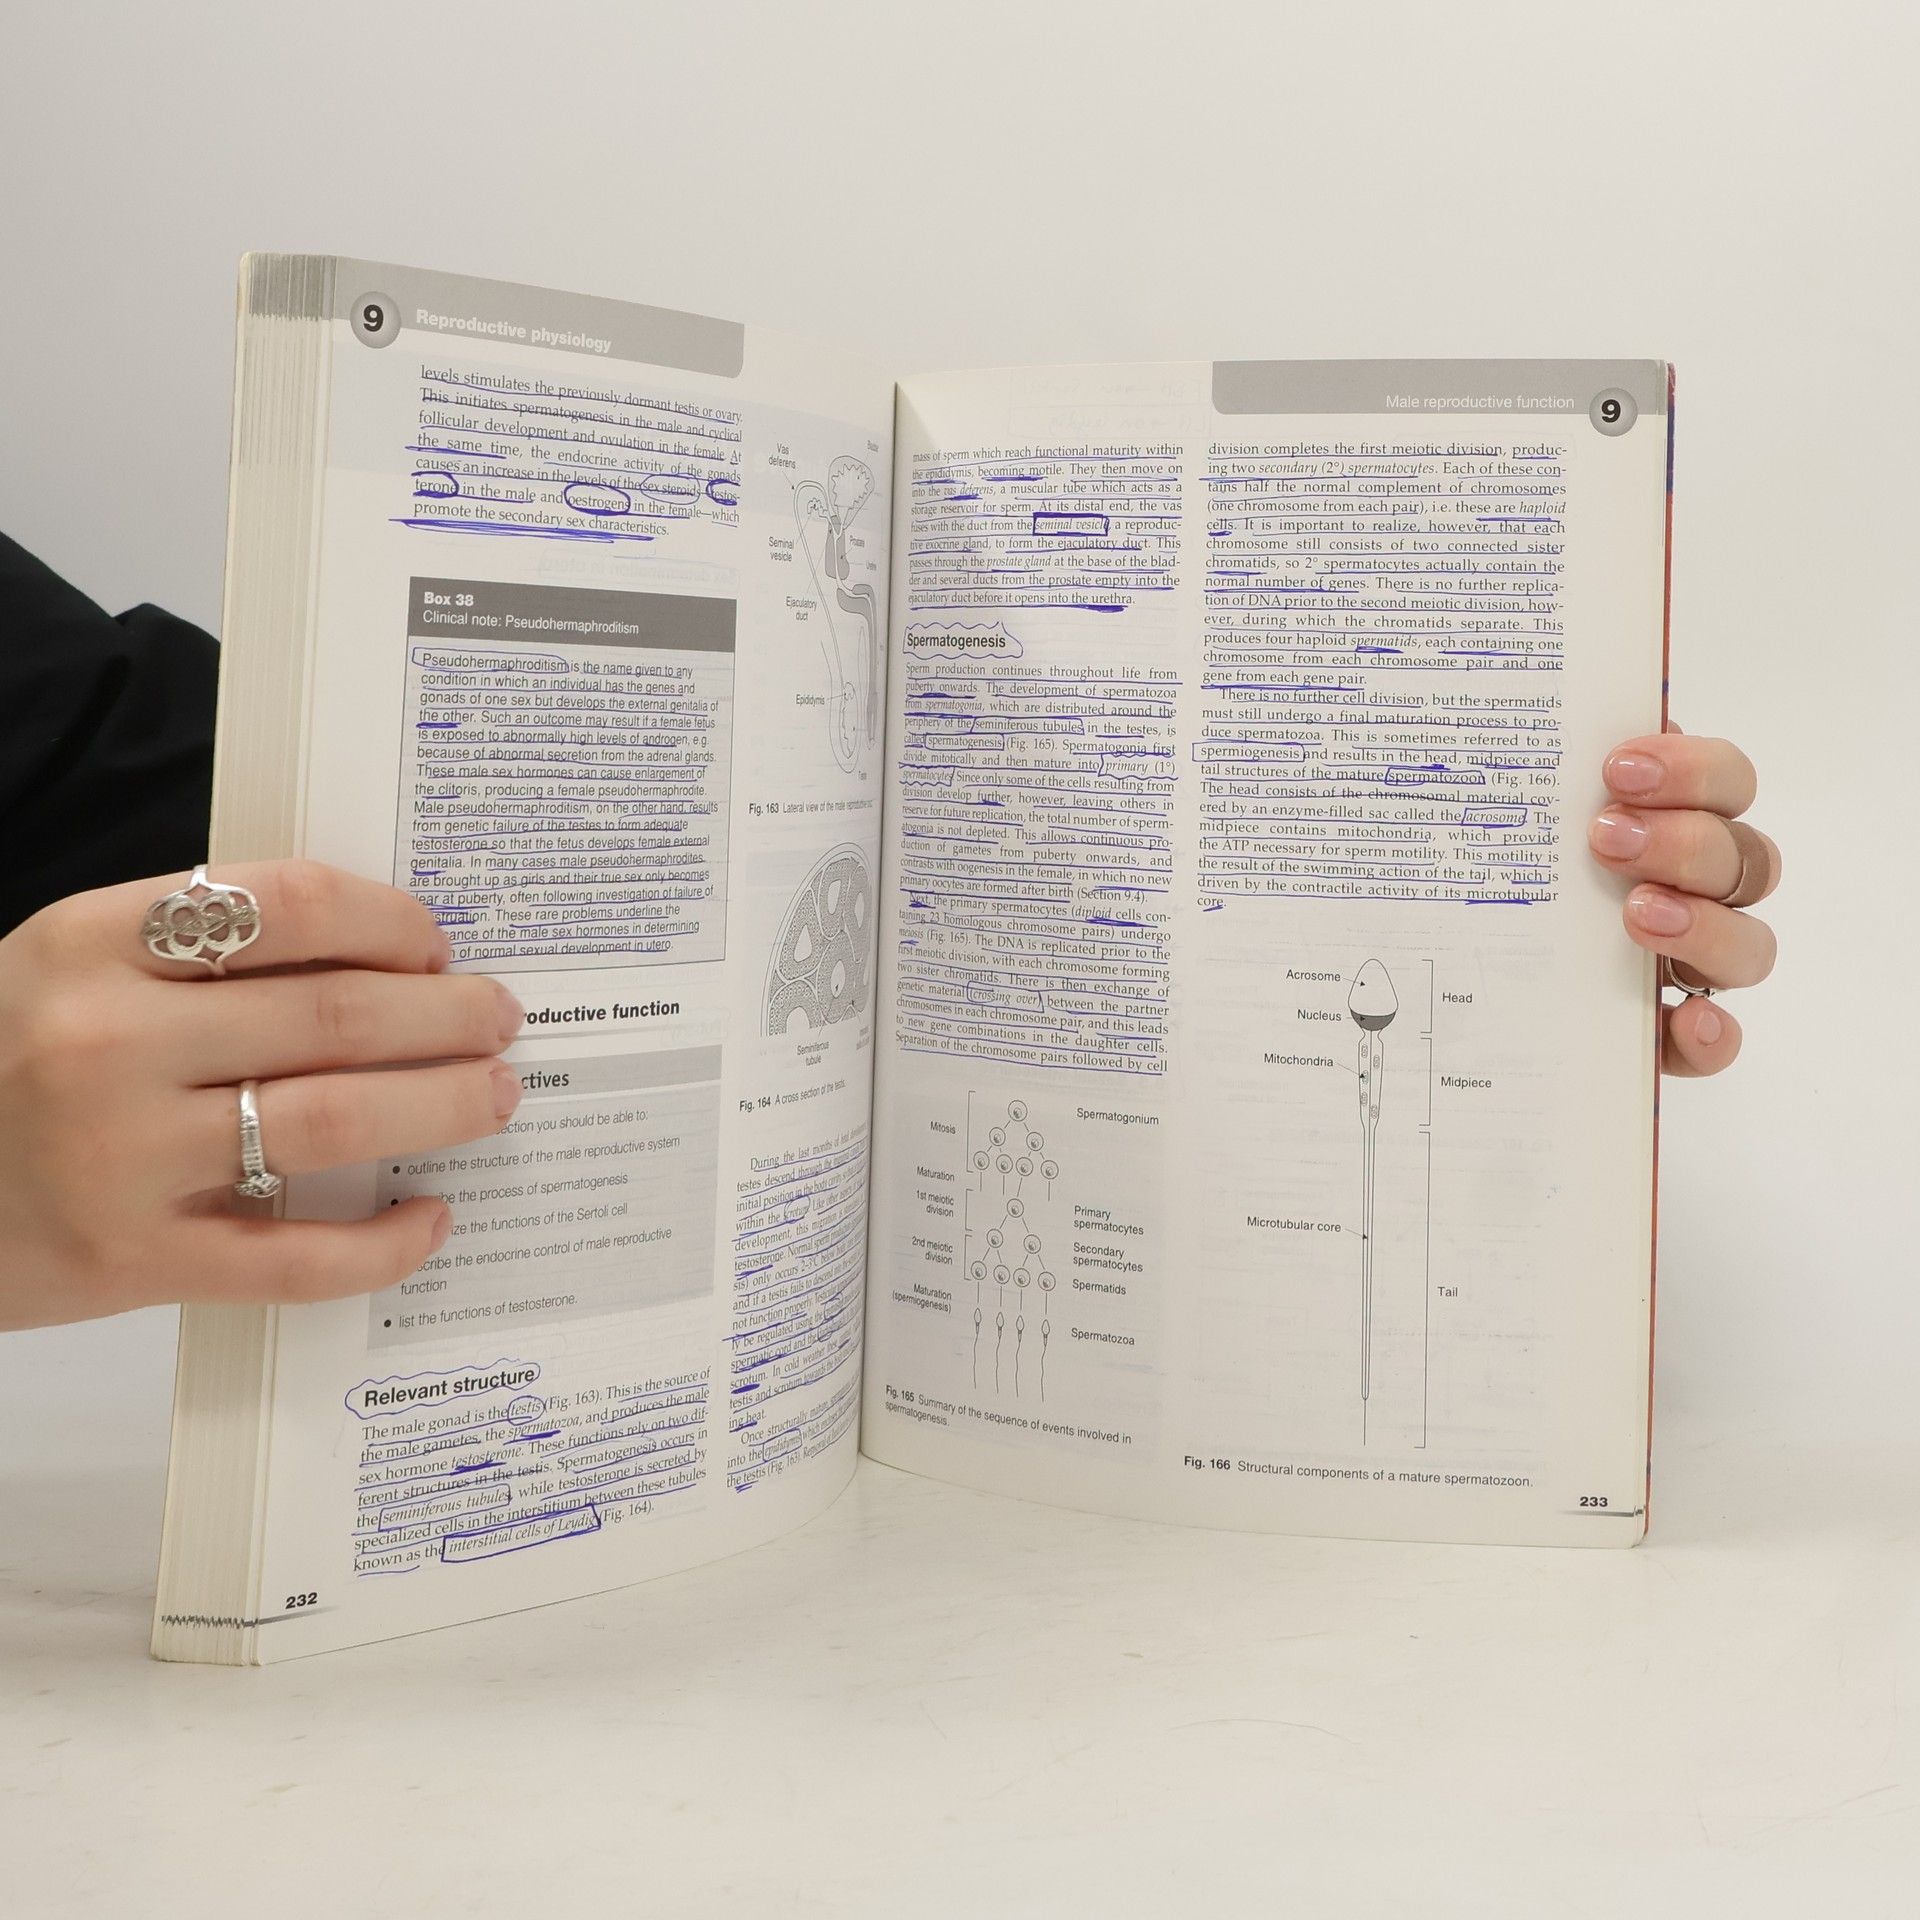 9
Reproductive physiology
levels stimulates the previously dormant testis or ovary.
This initiates spermatogenesis in the male and cyclical
follicular development and ovulation in the female. At
the same time, the endocrine activity of the gonads
causes an increase in the levels of the sex steroids—testos-
terone in the male and oestrogens in the female—which
promote the secondary sex characteristics.
Box 38
Clinical note: Pseudohermaphroditism
Pseudohermaphroditism is the name given to any
condition in which an individual has the genes and
gonads of one sex but develops the external genitalia of
the other. Such an outcome may result if a female fetus
is exposed to abnormally high levels of androgen, e.g.
because of abnormal secretion from the adrenal glands.
These male sex hormones can cause enlargement of
the clitoris, producing a female pseudohermaphrodite.
Male pseudohermaphroditism, on the other hand, results
from genetic failure of the testes to form adequate
testosterone so that the fetus develops female external
genitalia. In many cases male pseudohermaphrodites
are brought up as girls and their true sex only becomes
lear at puberty, often following investigation of failure of
struation. These rare problems underline the
ance of the male sex hormones in determining
n of normal sexual development in utero.
roductive function
ctives
ection you should be able to:
• outline the structure of the male reproductive system
be the process of spermatogenesis
ze the functions of the Sertoli cell
scribe the endocrine control of male reproductive
function
• list the functions of testosterone.
Relevant structure
The male gonad is the testis (Fig. 163). This is the source of
the male gametes, the spermatozoa, and produces the male
sex hormone testosterone. These functions rely on two dif-
ferent structures in the testis. Spermatogenesis occurs in
the seminiferous tubules, while testosterone is secreted by
specialized cells in the interstitium between these tubules
known as the interstitial cells of Leydig (Fig. 164).
232
Vas
deferens
Seminal
vesicle
Prostate
Ejaculatory
duct
Epididymis
Fig. 163 Lateral view of the male reproductive
Seminiferous
tubule
Fig. 164 A cross section of the testis.
During the last months of fetal
testes descend through the
initial position in the body cavity
within the scrotum. Like other
development, this migration is
testosterone. Normal sperm
sis) only occurs 2–3°C below
and if a testis fails to descend into the
not function properly. Testicular
ly be regulated using the
spermatic cord and the
scrotum. In cold weather, these
testis and scrotum towards the
ing heat.
Once structurally mature,
into the epididymis which
the testis (Fig. 163).
Male reproductive function
9
mass of sperm which reach functional maturity within
the epididymis, becoming motile. They then move on
into the vas deferens, a muscular tube which acts as a
storage reservoir for sperm. At its distal end, the vas
fuses with the duct from the seminal vesicle, a reproduc-
tive exocrine gland, to form the ejaculatory duct. This
passes through the prostate gland at the base of the blad-
der and several ducts from the prostate empty into the
ejaculatory duct before it opens into the urethra.
Spermatogenesis
Sperm production continues throughout life from
puberty onwards. The development of spermatozoa
from spermatogonia, which are distributed around the
periphery of the seminiferous tubules in the testes, is
called spermatogenesis (Fig. 165). Spermatogonia first
divide mitotically and then mature into primary (1°)
spermatocytes. Since only some of the cells resulting from
division develop further, however, leaving others in
reserve for future replication, the total number of sperm-
atogonia is not depleted. This allows continuous pro-
duction of gametes from puberty onwards, and
contrasts with oogenesis in the female, in which no new
primary oocytes are formed after birth (Section 9.4).
Next, the primary spermatocytes (diploid cells con-
taining 23 homologous chromosome pairs) undergo
meiosis (Fig. 165). The DNA is replicated prior to the
first meiotic division, with each chromosome forming
two sister chromatids. There is then exchange of
genetic material (crossing over) between the partner
chromosomes in each chromosome pair, and this leads
to new gene combinations in the daughter cells.
Separation of the chromosome pairs followed by cell
Mitosis
Spermatogonium
Maturation
1st meiotic
division
Primary
spermatocytes
2nd meiotic
division
Secondary
spermatocytes
Spermatids
Maturation
(spermiogenesis)
Spermatozoa
Fig. 165 Summary of the sequence of events involved in
spermatogenesis.
division completes the first meiotic division, produc-
ing two secondary (2°) spermatocytes. Each of these con-
tains half the normal complement of chromosomes
(one chromosome from each pair), i.e. these are haploid
cells. It is important to realize, however, that each
chromosome still consists of two connected sister
chromatids, so 2° spermatocytes actually contain the
normal number of genes. There is no further replica-
tion of DNA prior to the second meiotic division, how-
ever, during which the chromatids separate. This
produces four haploid spermatids, each containing one
chromosome from each chromosome pair and one
gene from each gene pair.
There is no further cell division, but the spermatids
must still undergo a final maturation process to pro-
duce spermatozoa. This is sometimes referred to as
spermiogenesis and results in the head, midpiece and
tail structures of the mature spermatozoon (Fig. 166).
The head consists of the chromosomal material cov-
ered by an enzyme-filled sac called the acrosome. The
midpiece contains mitochondria, which provide
the ATP necessary for sperm motility. This motility is
the result of the swimming action of the tail, which is
driven by the contractile activity of its microtubular
core.
Acrosome
Head
Nucleus
Mitochondria
Midpiece
Microtubular core
Tail
Fig. 166 Structural components of a mature spermatozoon.
233